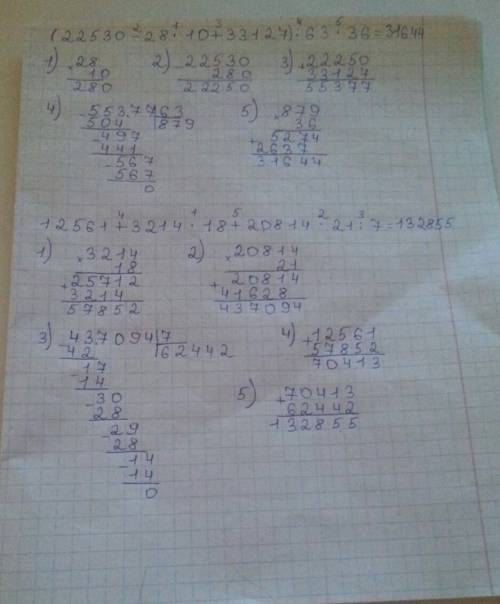 (22530-28·10+33127):63·36=31644
1) ×28 2) -22530 3) +22250
10 280 33127
280 22250 55377
4) -55377|63 5) ×879
504 |879 36
-497 +5274
441 2637
-567 31644
567
0
12561+3214·18+20814·21:7=132855
1) ×3214 2) ×20814
18 21
+25712 +20814
3214 41628
57852 437094
3) -437094|7 4) +12561
42 |62442 57852
-17 70413
14 5) +70413
-30 62442
28 132855
-29
28
-14
14
0